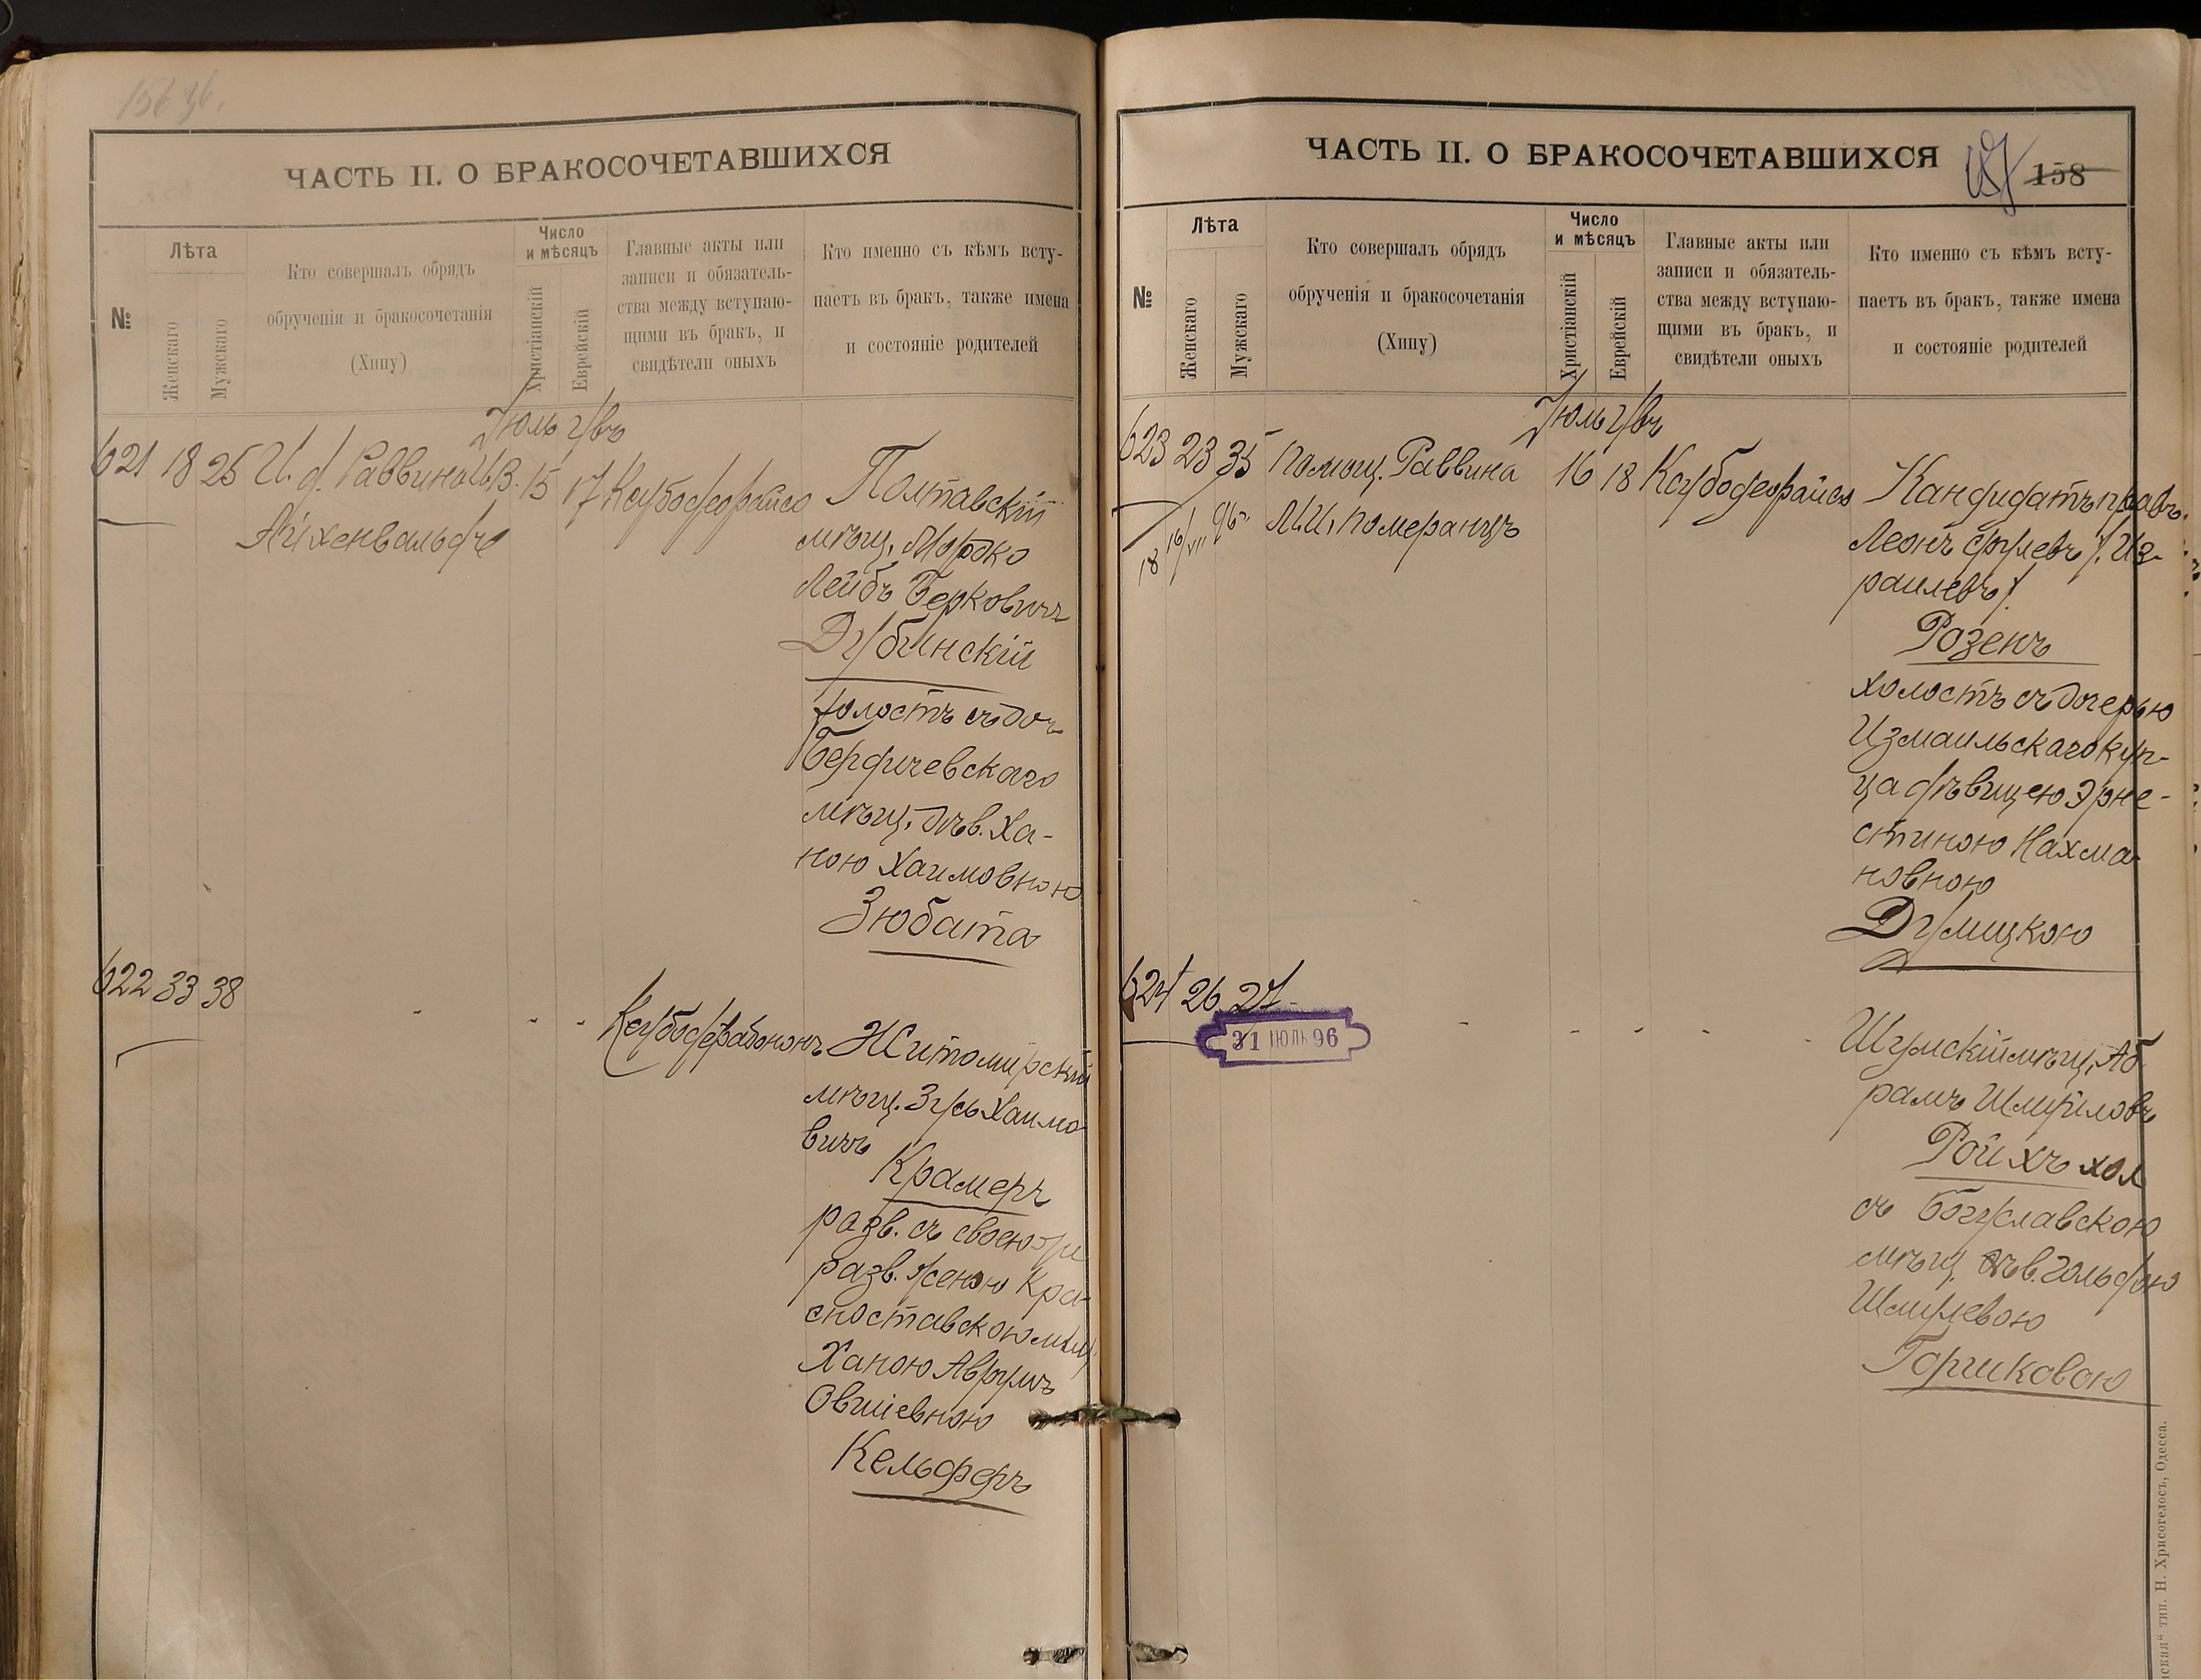 ЧАСТЬ II. О БРАКОСОЧЕТАВШИХСЯ
№
Лѣта
Женскаго
Мужскаго
Кто совершалъ обрядъ
обрученія и бракосочетанія
(Хипу)
Число
и мѣсяцъ
Христіанскій
Еврейскій
Главные акты или
записи и обязатель-
ства между вступаю-
щими въ бракъ, и
свидѣтели оныхъ
Кто именно съ кѣмъ всту-
паетъ въ бракъ, также имена
и состояніе родителей
Іюль
621 18 25 И. д. Раввина 15 17
Айхенвальдъ
Полтавскій
мѣщ. Мордко
Лейбъ Берковичъ
Дубинскій
холостъ съ доч.
Бердичевскаго
мѣщ. дѣв. Ха-
ною Хаимовною
Зюбата
622 33 38 - - -
Житомирскій
мѣщ. Зусь Хаимо
вичъ
Крамеръ
разв. съ своею
разв. женою Кра
сноставскою мѣщ.
Ханою Аврумъ
Овшіевною
Кельферъ
ЧАСТЬ II. О БРАКОСОЧЕТАВШИХСЯ
157 158
№
Лѣта
Женскаго
Мужскаго
Кто совершалъ обрядъ
обрученія и бракосочетанія
(Хипу)
Число
и мѣсяцъ
Христіанскій
Еврейскій
Главные акты или
записи и обязатель-
ства между вступаю-
щими въ бракъ, и
свидѣтели оныхъ
Кто именно съ кѣмъ всту-
паетъ въ бракъ, также имена
и состояніе родителей
Іюль
623 23 35 Помощ. Раввина 16 18
18 16/VII 96
Л.И. Померанцъ
Кандидатъ правъ
Леонъ Срулевъ /. Из-
раилевъ/.
Розенъ
холостъ съ дочерью
Измаильскаго куп-
ца дѣвицею Эрне-
стиною Нахма-
новною
Дулицкою
624 26 27 - - - -
31 ІЮЛЬ 96
Шумскій мѣщ. Аб
рамъ Шмуйловъ
Ройхъ хол
съ Богуславскою
мѣщ. дѣв. Гольдою
Шмулевою
Горшковою
тип. Н. Хрисогелосъ, Одесса.